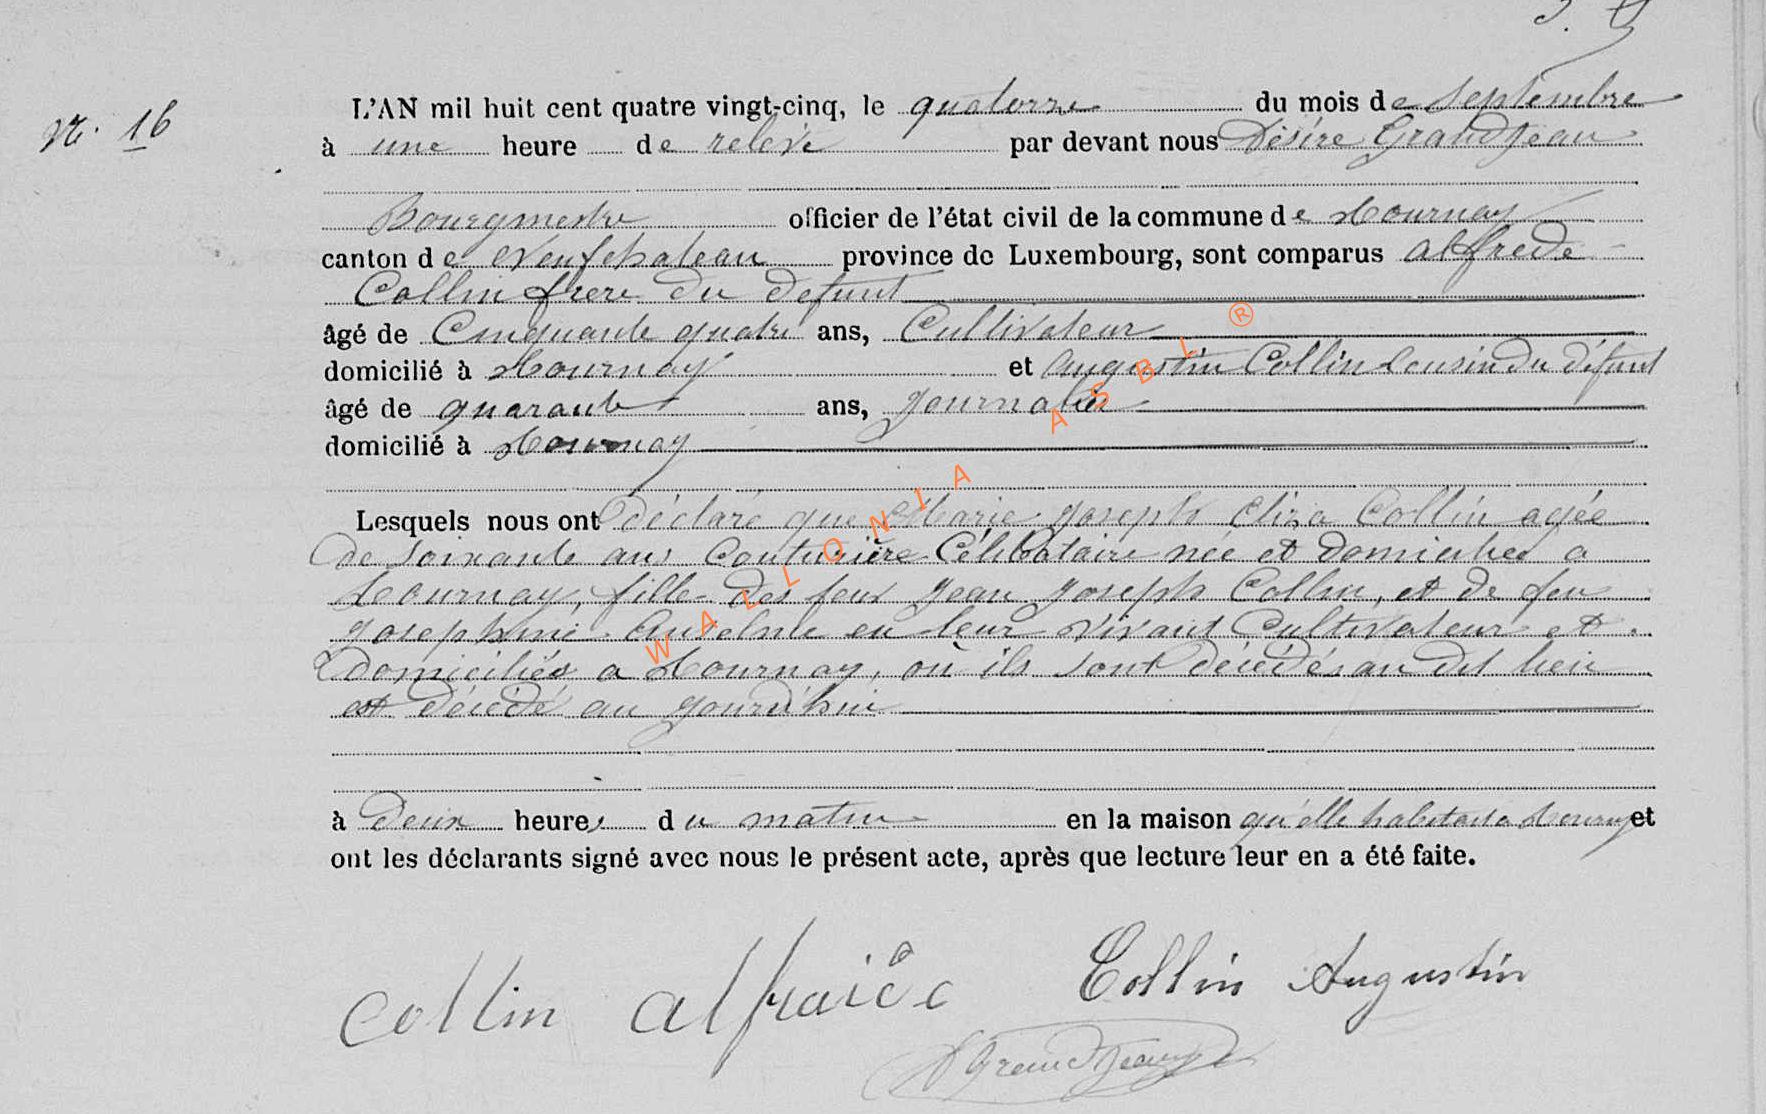 N°. 16
L'AN mil huit cent quatre vingt-cinq, le quatorze du mois de Septembre
à une heure de relevé par devant nous Désiré Grandjean
Bourgmestre officier de l'état civil de la commune de Tournay
canton de Neufchateau province de Luxembourg, sont comparus Alfrede
Collin frere du defunt
âgé de Cinquante quatre ans, Cultivateur
domicilié à Tournay et Augustin Collin Cousin du défunt
âgé de quarante ans, Journalier
domicilié à Tournay
Lesquels nous ont déclaré que Marie Joseph Eliza Collin agée
de soixante ans Couturière Célibataire née et domiciliée a
Tournay, fille des feux Jean Joseph Collin, et de feu
Josephine Anselme en leur vivant Cultivateur et
domiciliés a Tournay, où ils sont décédés au dit lieu
est décédé au jourd'hui
à Deux heures du matin en la maison qu'elle habitait a Tournay et
ont les déclarants signé avec nous le présent acte, après que lecture leur en a été faite.
Collin Alfraide Collin Augustin
D Grandjean
WALLONIA ASBL ®